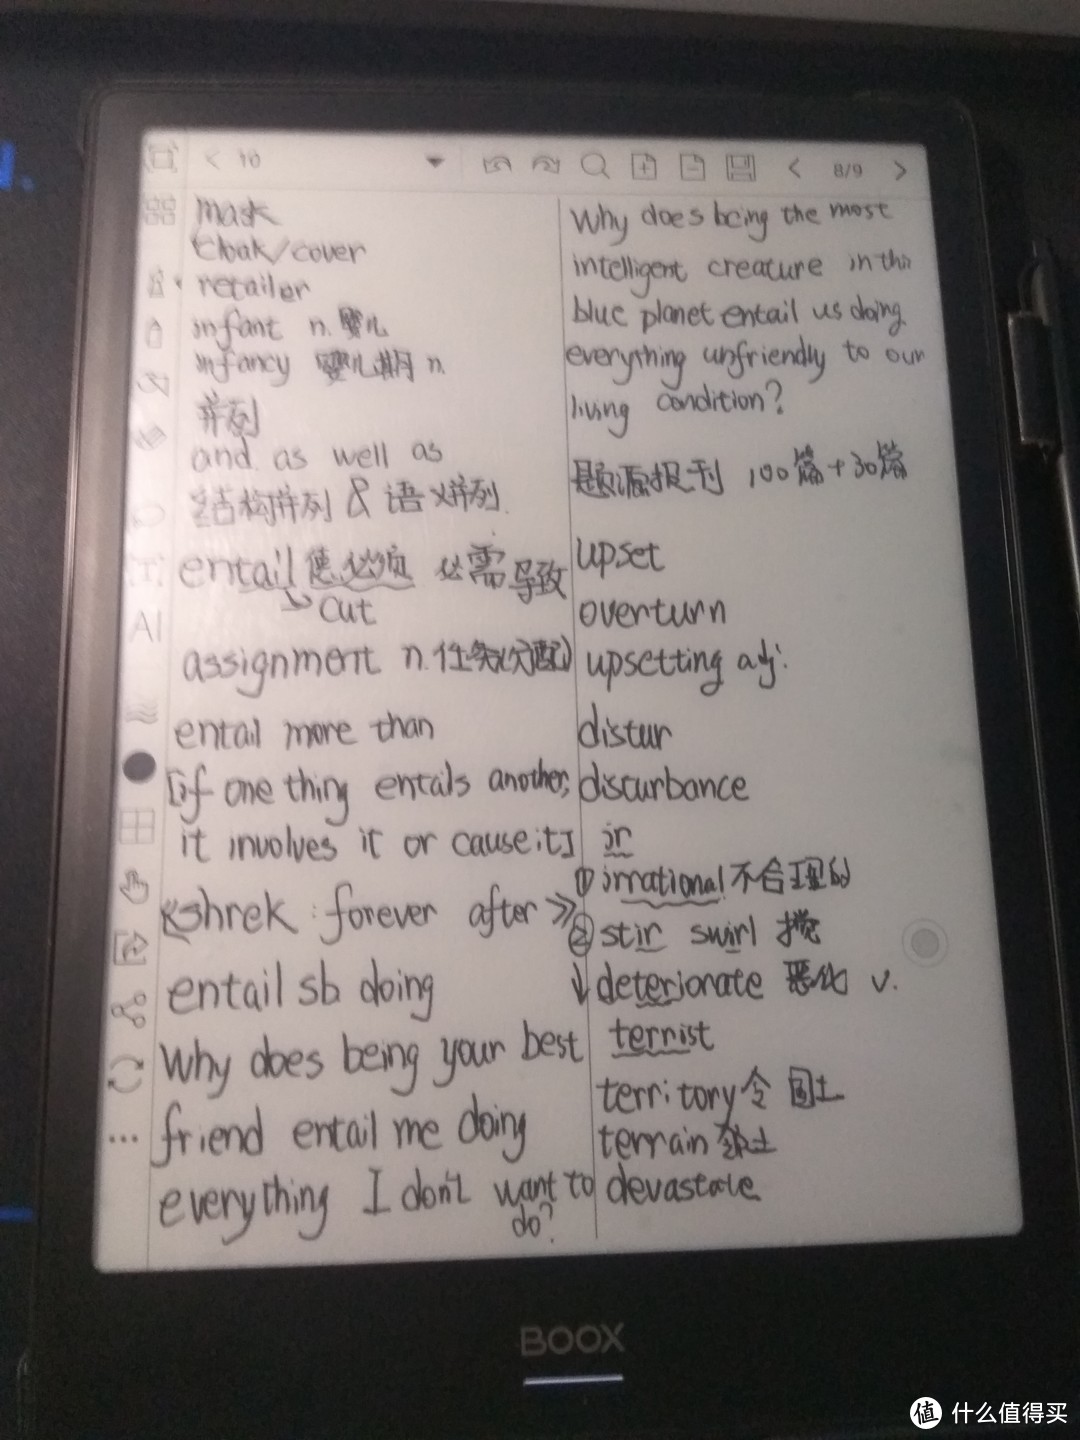 < 10
8/9
mask
cloak/cover
retailer
infant n. 婴儿
infancy 婴儿期 n.
并列
and. as well as
结构并列 & 语义并列.
entail 使必须 必需 导致
cut
assignment n. 任务(分配)
entail more than
[if one thing entails another,
it involves it or cause it]
《shrek : forever after》
entail sb doing
Why does being your best
friend entail me doing
everything I don't want to
do?
Why does being the most
intelligent creature in this
blue planet entail us doing
everything unfriendly to our
living condition?
题源报刊 100篇+30篇
upset
overturn
upsetting adj.
distur
disturbance
ir
① irrational 不合理的
② stir swirl 搅
↓ deteriorate 恶化 v.
territory 国土
terrain
devastate
AI
BOOX
值 什么值得买